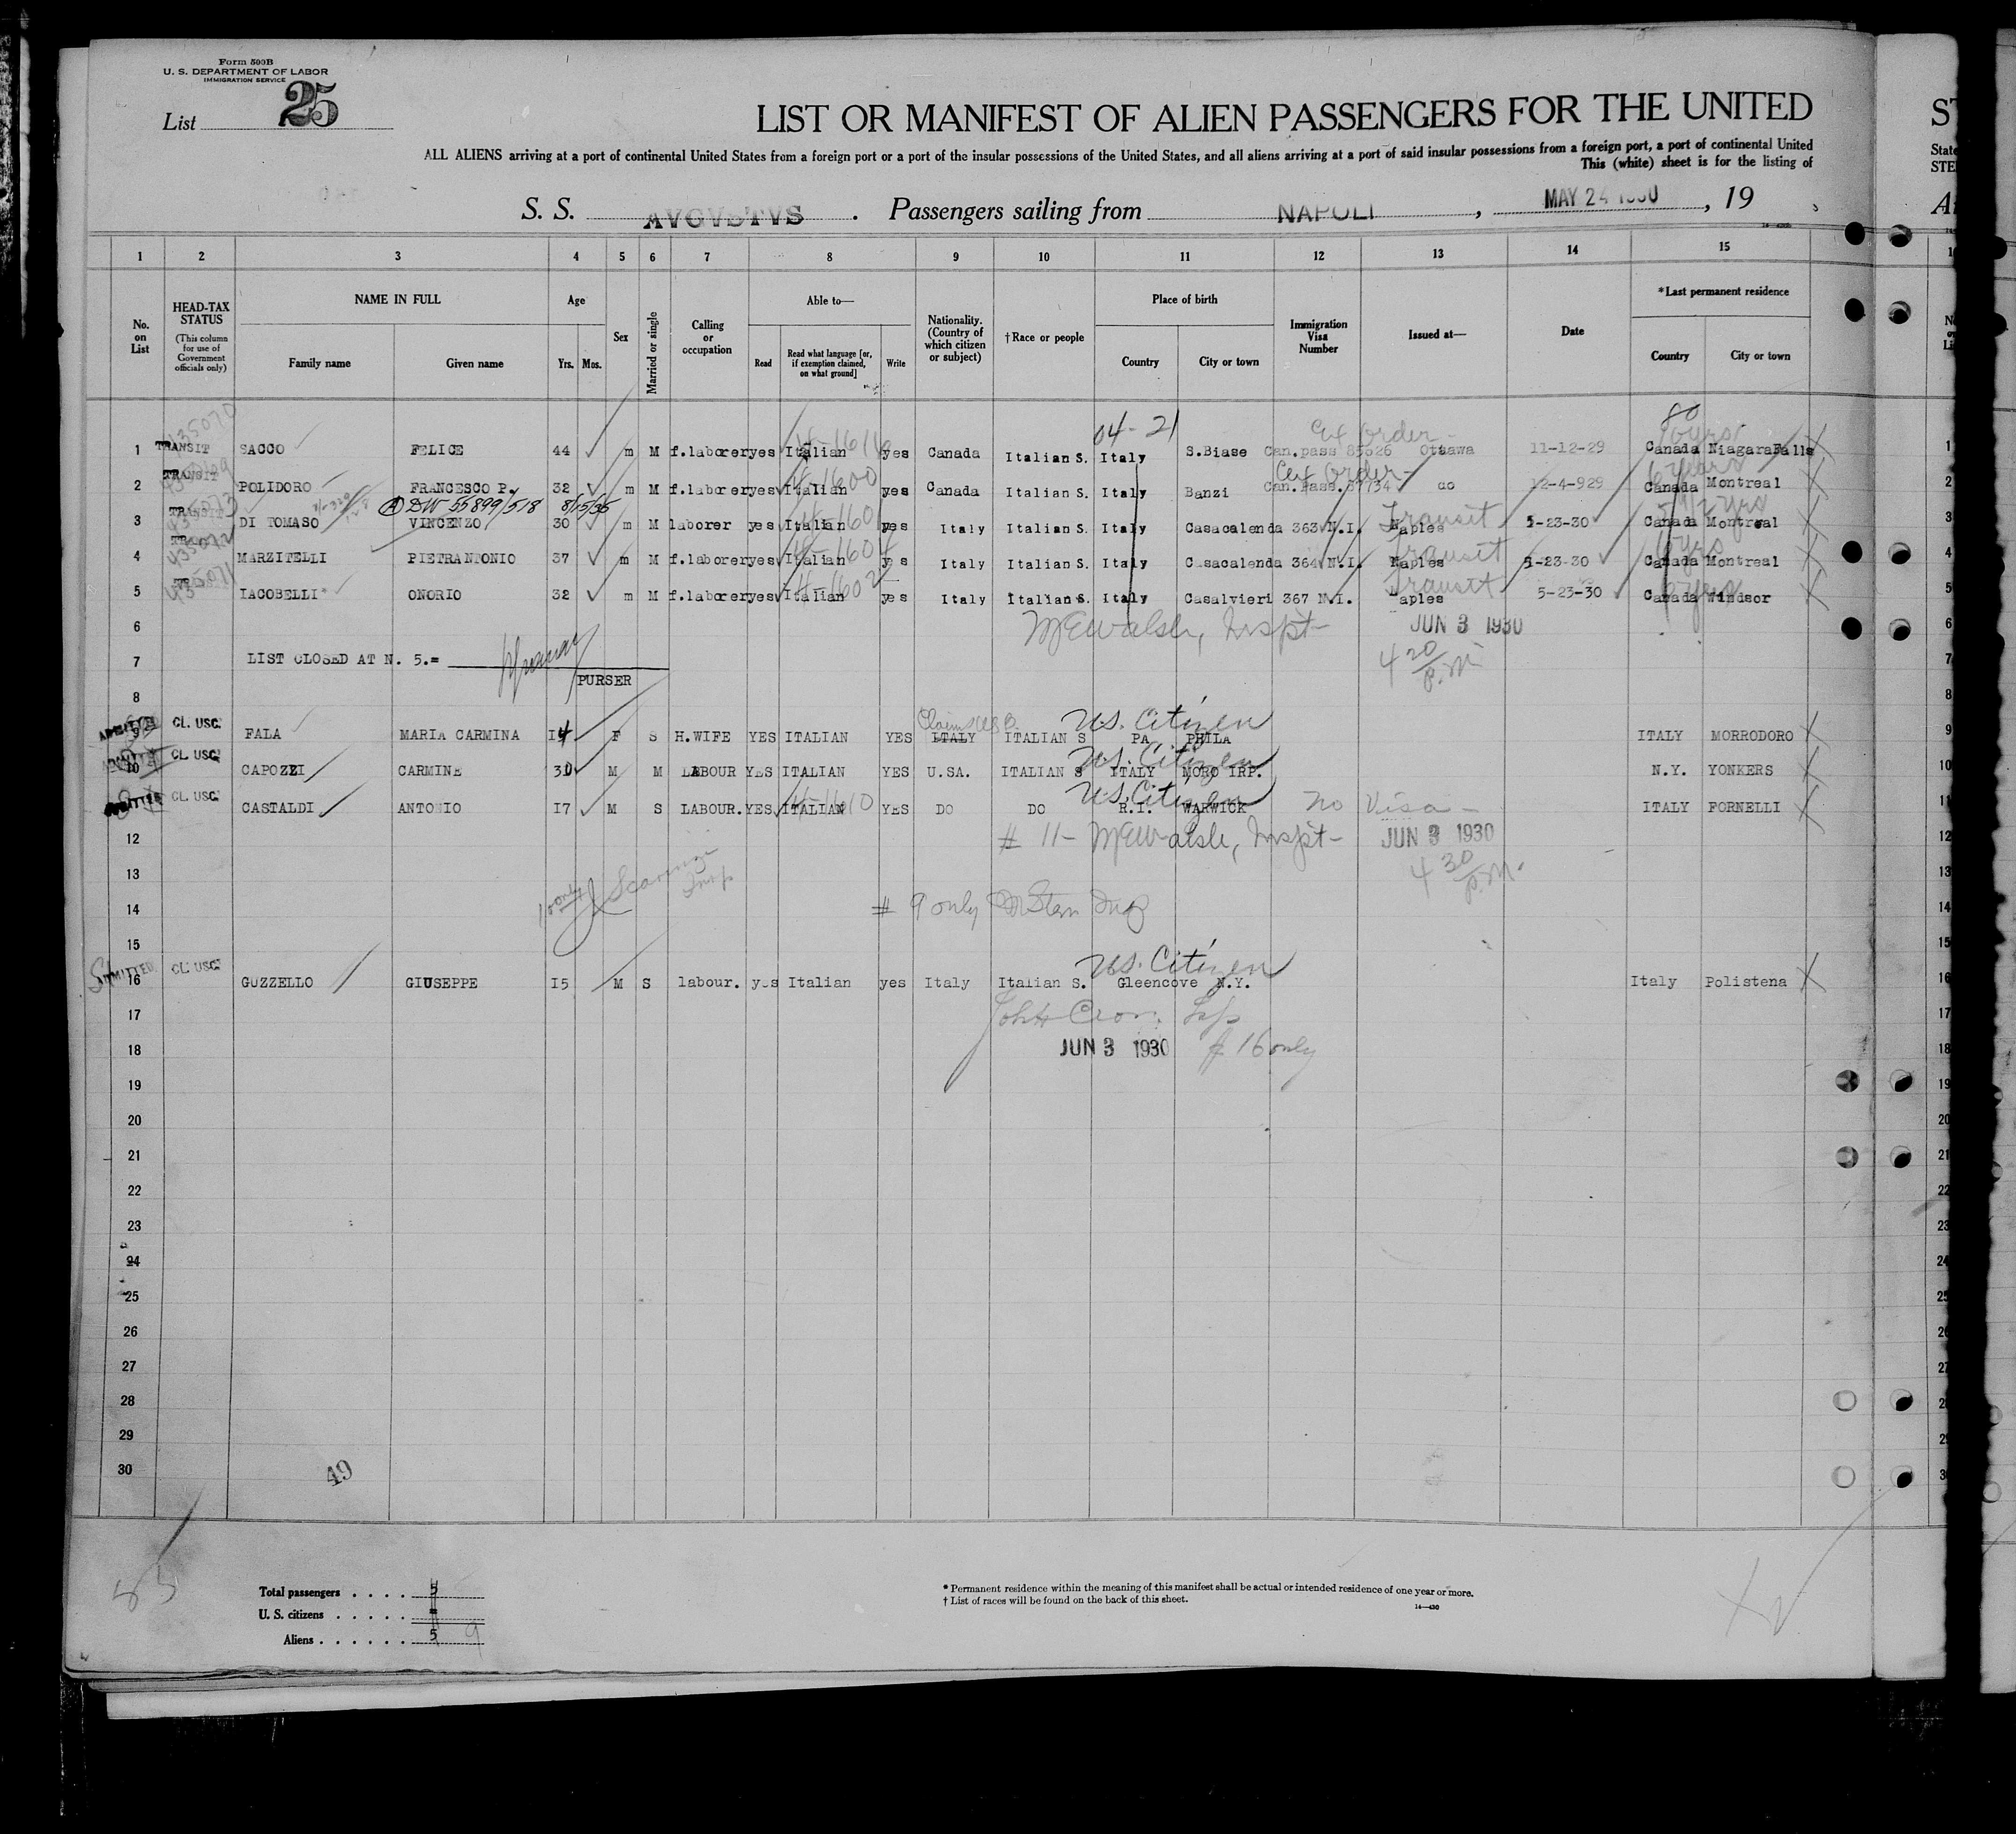 Form 500B
U. S. DEPARTMENT OF LABOR
IMMIGRATION SERVICE
List 25
LIST OR MANIFEST OF ALIEN PASSENGERS FOR THE UNITED
ALL ALIENS arriving at a port of continental United States from a foreign port or a port of the insular possessions of the United States, and all aliens arriving at a port of said insular possessions from a foreign port, a port of continental United
This (white) sheet is for the listing of
S. S. AVGVSTVS . Passengers sailing from NAPOLI , MAY 24 1930 , 19
1 2 3 4 5 6 7 8 9 10 11 12 13 14 15
No. on List
HEAD-TAX STATUS
(This column for use of Government officials only)
NAME IN FULL
Family name Given name
Age
Yrs. Mos.
Sex
Married or single
Calling or occupation
Able to—
Read Read what language [or, if exemption claimed, on what ground] Write
Nationality. (Country of which citizen or subject)
†Race or people
Place of birth
Country City or town
Immigration Visa Number
Issued at—
Date
*Last permanent residence
Country City or town
04-21
Ex Order
1 TRANSIT SACCO FELICE 44 m M f.laborer yes Italian yes Canada Italian S. Italy S.Biase Can.pass 85626 Ottawa 11-12-29 Canada NiagaraFalls
2 TRANSIT POLIDORO FRANCESCO P. 32 m M f.laborer yes Italian yes Canada Italian S. Italy Banzi Can.Pass.87734 do 12-4-929 Canada Montreal
DW 55899/518 8/15/36
3 TRANSIT DI TOMASO VINCENZO 30 m M laborer yes Italian yes Italy Italian S. Italy Casacalenda 363 N.I. Naples Transit 5-23-30 Canada Montreal
4 MARZITELLI PIETRANTONIO 37 m M f.laborer yes Italian yes Italy Italian S. Italy Casacalenda 364 N.I. Naples Transit 5-23-30 Canada Montreal
5 IACOBELLI ONORIO 32 m M f.laborer yes Italian yes Italy Italian S. Italy Casalvieri 367 N.I. Naples Transit 5-23-30 Canada Windsor
6 McWalsh, Inspt- JUN 3 1930
7 LIST CLOSED AT N. 5.= 4 20 p.m
PURSER
8
9 ADMITTED CL. USC. FALA MARIA CARMINA 14 F S H.WIFE YES ITALIAN YES ITALY ITALIAN S PA PHILA U.S. Citizen ITALY MORRODORO
10 CL. USC. CAPOZZI CARMINE 30 M M LABOUR YES ITALIAN YES U.SA. ITALIAN S ITALY MORO IRP. U.S. Citizen N.Y. YONKERS
11 CL. USC. CASTALDI ANTONIO 17 M S LABOUR. YES ITALIAN YES DO DO R.I. WARWICK U.S. Citizen no Visa - ITALY FORNELLI
12 # 11- McWalsh, Inspt- JUN 3 1930
13 4 30 p.m.
14 # 9 only
15
16 ADMITTED CL. USC. GUZZELLO GIUSEPPE 15 M S labour. yes Italian yes Italy Italian S. Gleencove N.Y. U.S. Citizen Italy Polistena
17
18 JUN 3 1930 # 16 only
19
20
21
22
23
24
25
26
27
28
29
30
49
Total passengers . . . . 5
U. S. citizens . . . . .
Aliens . . . . . . 5 9
* Permanent residence within the meaning of this manifest shall be actual or intended residence of one year or more.
† List of races will be found on the back of this sheet.
14—430